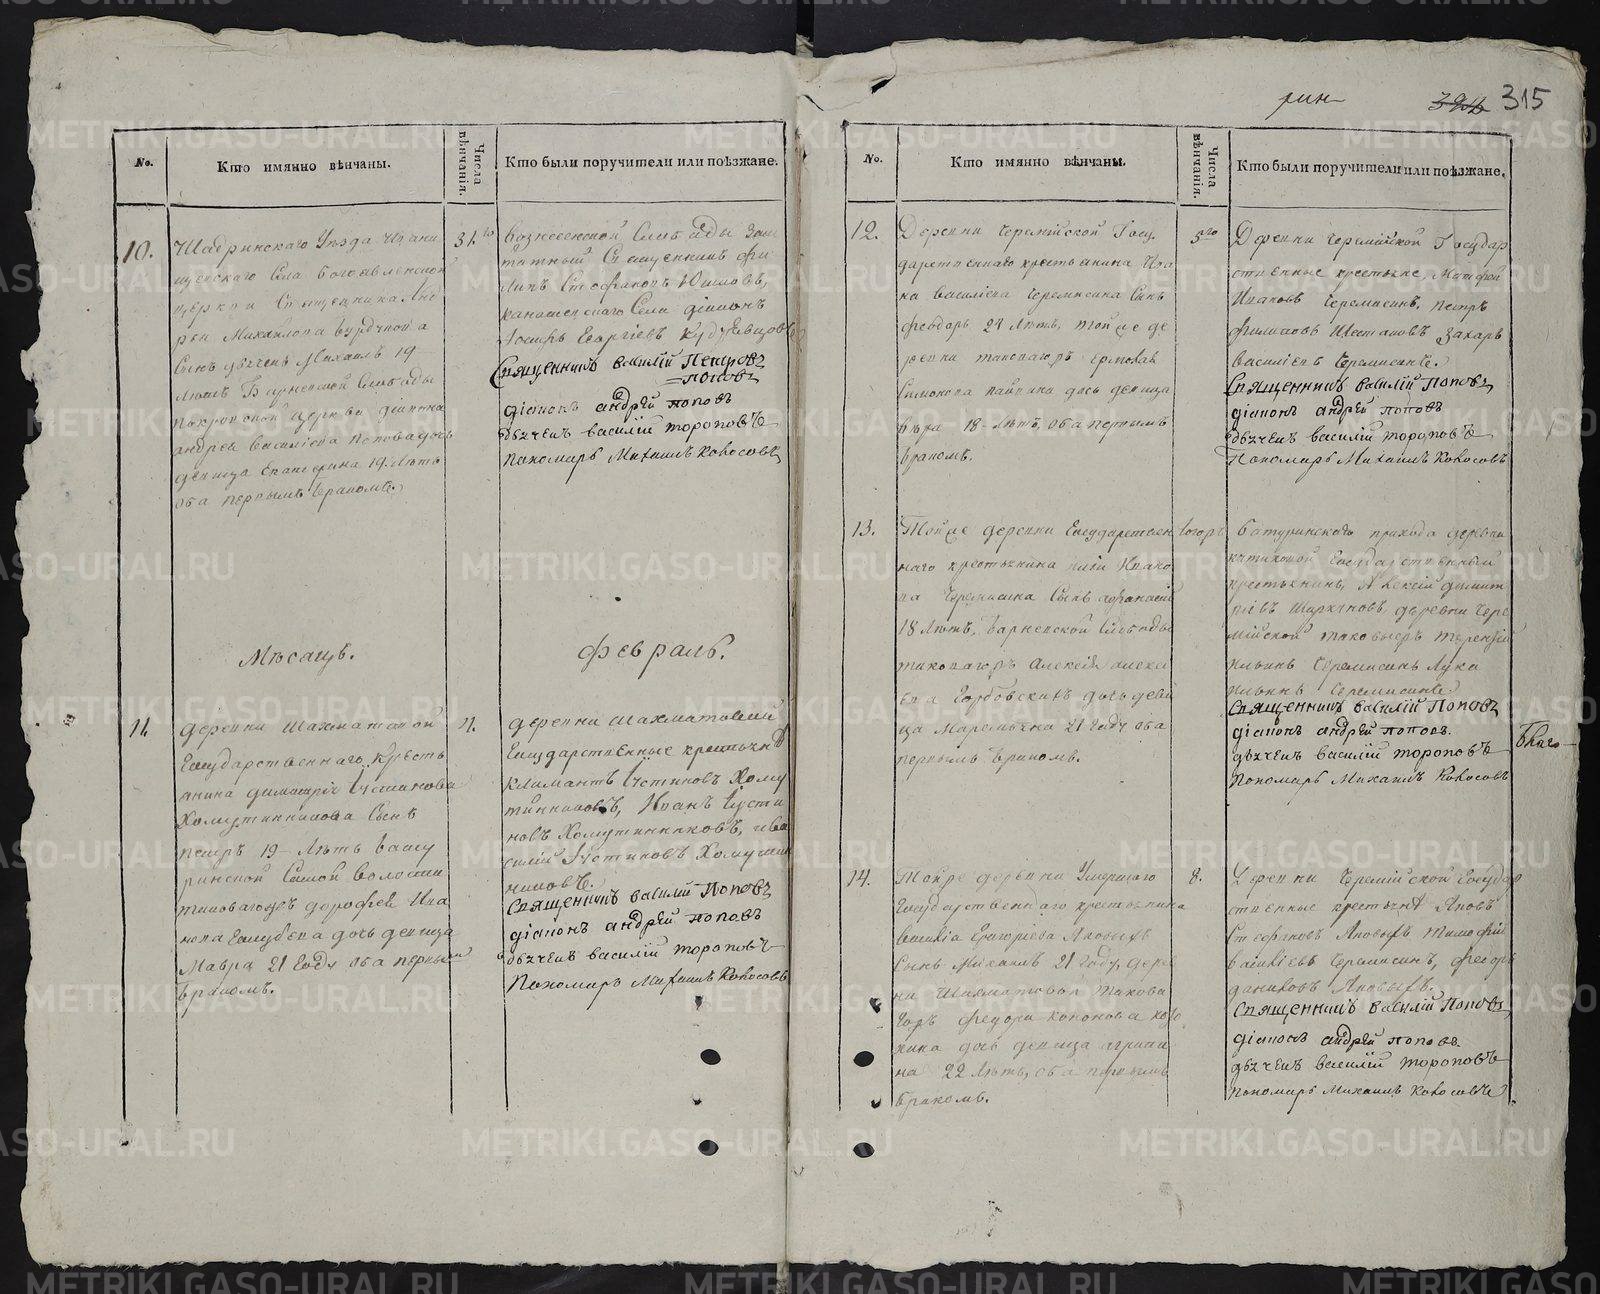 рин
394 315
No.
Кто имянно вѣнчаны.
Числа вѣнчанія.
Кто были поручители или поѣзжане.
10.
Шадринскаго Уѣзда
села Богоявленской
церкви Священника Анд
рея Михаилова
Сынъ дьячекъ Михаилъ 19
лѣтъ Барневской Слободы
Покровской Церкви діакона
андрея василіева Попова дочь
девица Екатерина 19 лѣтъ
оба первымъ бракомъ.
31.го
вознесенской Слободы Заш
татный Священникъ фи
липъ Стефановъ Юшковъ,
Села діаконъ
Георгіевъ Кудрявцовъ
Священникъ василій Петровъ
Поповъ
діаконъ андрей поповъ
дьячекъ василій тороповъ
Пономарь Михаилъ Кокосовъ
Мѣсацъ.
февраль.
11.
деревни Шахматовой
Государственнаго кресть
янина димитрія Іустинова
Холмутинникова Сынъ
петръ 19 лѣтъ бату
ринской Самой волости
таковагожъ дорофея Ива
нова Голубева дочь девица
Мавра 21 Году оба первымъ
бракомъ.
деревни шахматовской
Государственные крестьянѣ
климантъ Іустиновъ Холму
тинниковъ, Иоанъ Іусти
новъ Холмутинниковъ, и ва
силій Іустиновъ Холмутин
никовъ.
Священникъ василій Поповъ
діаконъ андрей поповъ
дьячекъ василій тороповъ
Пономарь Михаилъ Кокосовъ
No.
Кто имянно вѣнчаны.
Числа вѣнчанія.
Кто были поручители или поѣзжане.
12.
Деревни Черемійской Госу
дарственнаго крестьянина Ива
на василіева Черемисина Сынъ
феодоръ 24 лѣтъ, той же де
ревни таковагожъ ермолая
Симонова дочь девица
вѣра 18 лѣтъ, оба первымъ
бракомъ.
Деревни Черемійской Государ
ственные крестьяне, Матфей
Ивановъ Черемисинъ, петръ
Филиповъ Шестаковъ Захаръ
василіевъ Черемисинъ.
Священникъ василій Поповъ
діаконъ андрей поповъ
дьячекъ василій тороповъ
Пономарь Михаилъ Кокосовъ
13.
Той же деревни Государствен
наго крестьянина иліи Ивано
ва Черемисина Сынъ афанасій
18 лѣтъ, барневской Слободы
таковагожъ алексія алексѣ
ева дочь деви
ца Маремьяна 21 году оба
первымъ бракомъ.
батуринскаго прихода деревни
Государственный
крестьянинъ, Алексій димит
ріевъ деревни Чере
мійской таковыежъ терентій
ильинъ Черемисинъ Лука
ильинъ Черемисинъ
Священникъ василій Поповъ
діаконъ андрей поповъ.
дьячекъ василій тороповъ
Пономарь Михаилъ Кокосовъ
Благо-
14.
Той же деревни Умершаго
Государственнаго крестьянина
василія Григоріева Яковыхъ
Сынъ Михаилъ 21 году, дерев
ни Шахматовой такова
гожъ феодора кононова
дочь девица агрипи
на 22 лѣтъ, оба первымъ
бракомъ.
8.
Деревни Черемійской Государ
ственные крестьянѣ Яковъ
Стефановъ Яковыхъ тимофей
василіевъ Черемисинъ, феодоръ
даниловъ Яковыхъ.
Священникъ василій Поповъ
діаконъ андрей поповъ
дьячекъ василій тороповъ
Пономарь Михаилъ Кокосовъ